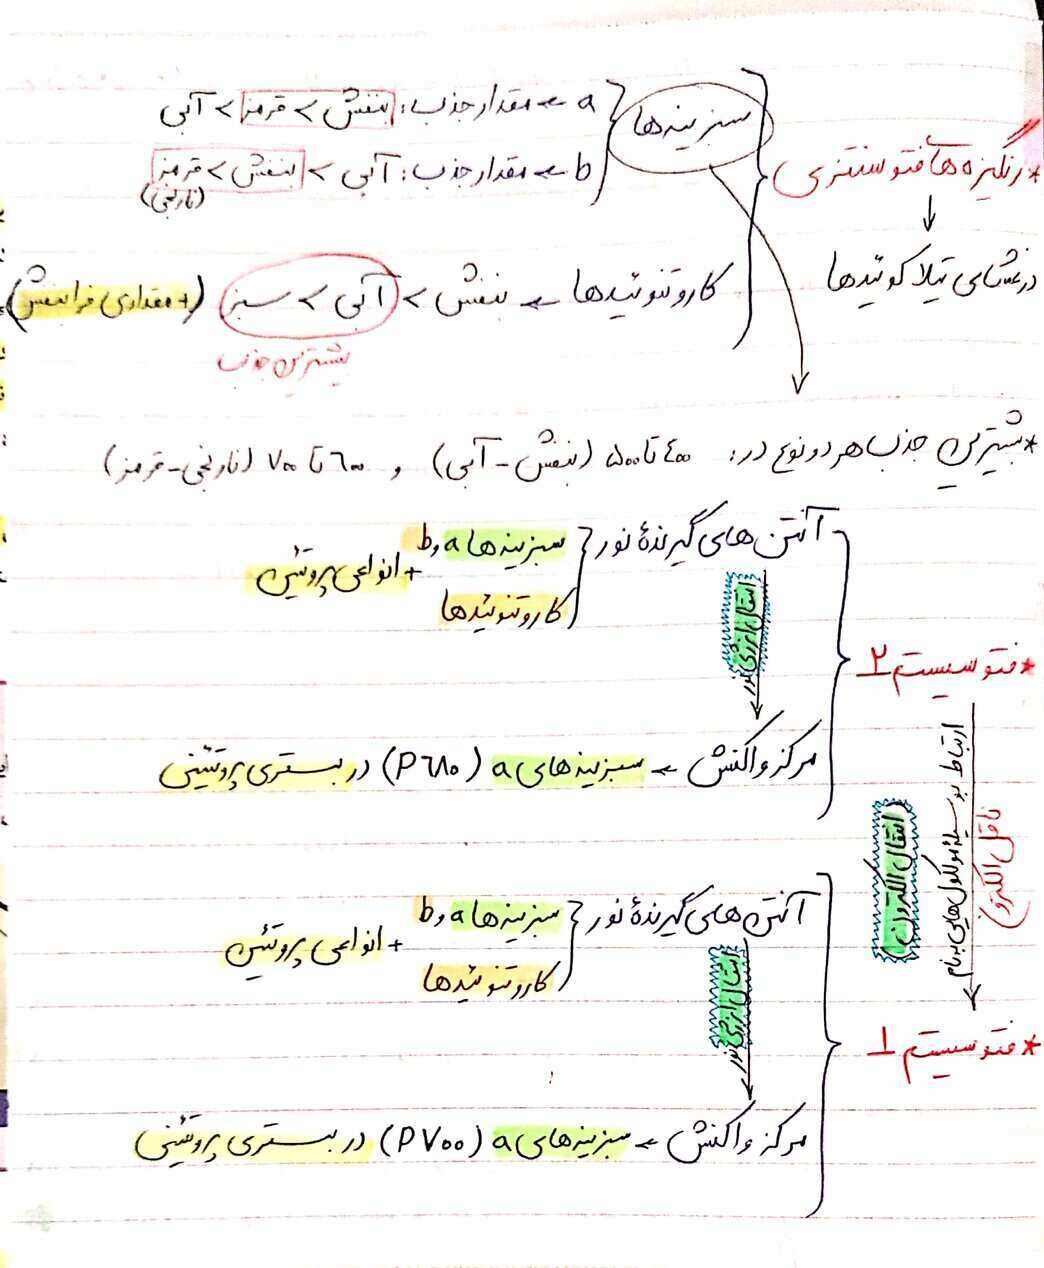 * رنگیزه های فتوسنتزی
در غشای تیلاکوئیدها
سبزینه‌ها
a ← مقدار جذب: بنفش > قرمز > آبی
b ← مقدار جذب: آبی > بنفش > قرمز
(نارنجی)
کاروتنوئیدها ← بنفش > آبی > سبز (+ مقداری فرابنفش)
بیشترین جذب
* بیشترین جذب هر دو نوع در: ۴۰۰ تا ۵۰۰ (بنفش - آبی) و ۶۰۰ تا ۷۰۰ (نارنجی - قرمز)
* فتوسیستم ۲
آنتن های گیرندهٔ نور
سبزینه‌ها a و b
+ انواعی پروتئین
کاروتنوئیدها
انتقال انرژی نور
مرکز واکنش ← سبزینه‌های a (P۶۸۰) در بستری پروتئینی
ارتباط بوسیلهٔ مولکول‌هایی به نام
ناقل الکترون
(انتقال الکترون)
* فتوسیستم ۱
آنتن های گیرندهٔ نور
سبزینه‌ها a و b
+ انواعی پروتئین
کاروتنوئیدها
انتقال انرژی نور
مرکز واکنش ← سبزینه‌های a (P۷۰۰) در بستری پروتئینی